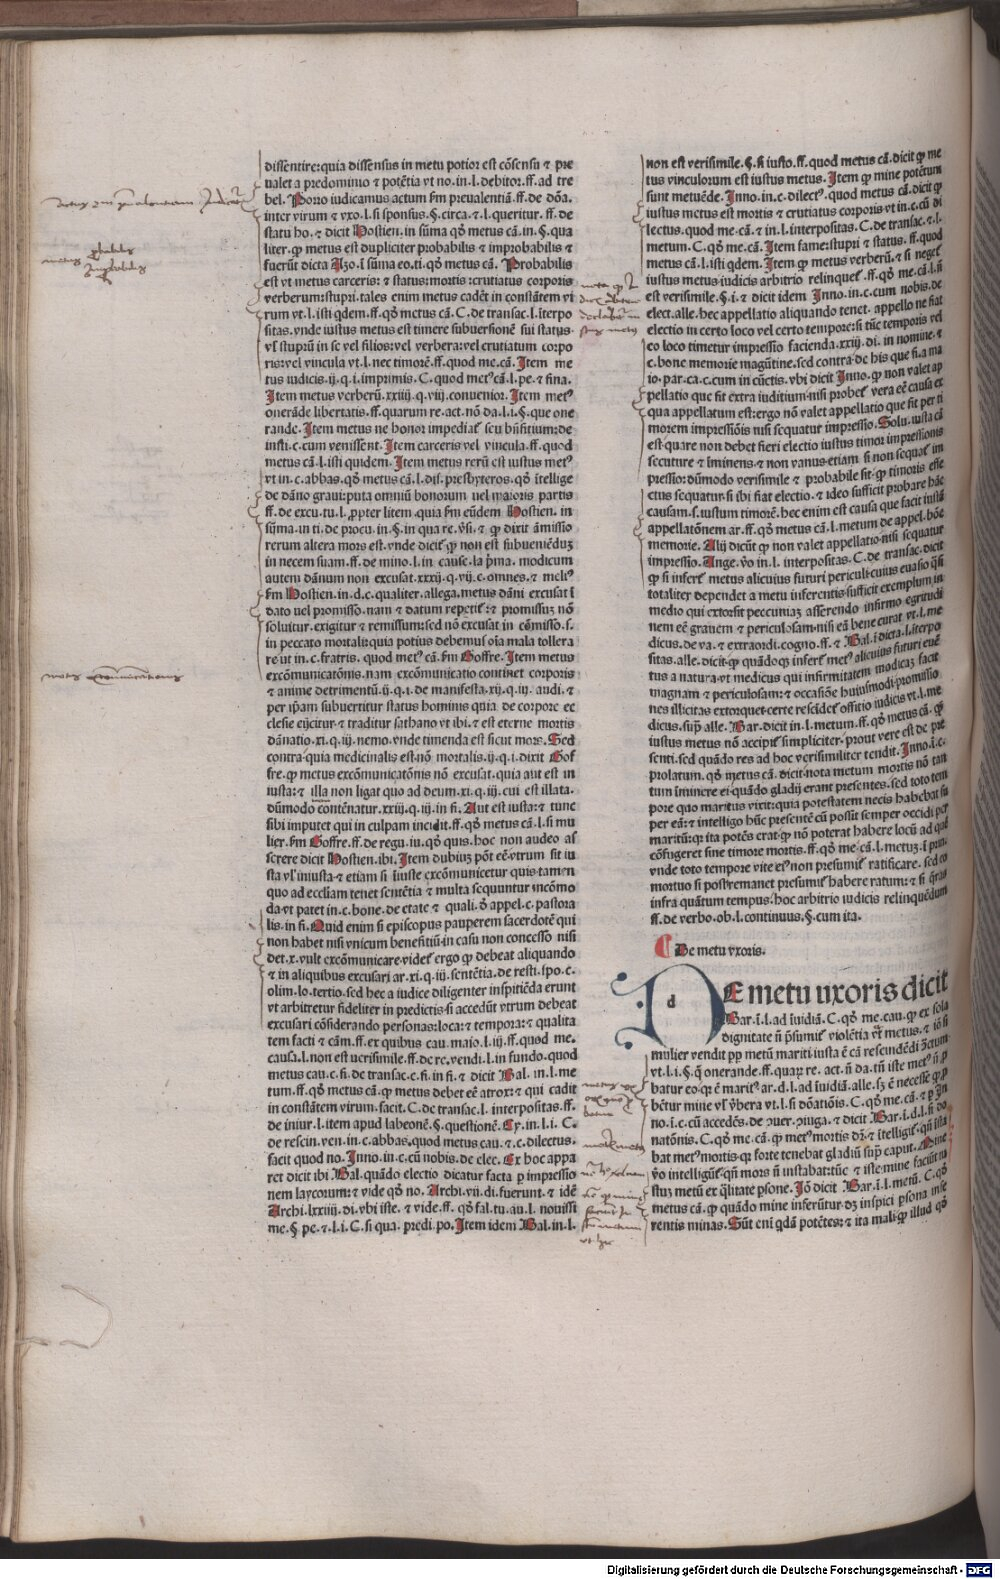 dissentire:quia dissensus in metu potior est cōsensu ⁊ pre
ualet a predominio ⁊ potētia vt no.in.l.debitor.ff.ad tre
bel. Porro iudicamus actum s̄m preualentiā.ff.de dōa.
inter virum ⁊ vxo.l.si sponsus.§.circa.⁊.l.queritur.ff.de
statu ho.⁊ dicit Hostien.in sūma qō metus cā.in.§.qua
liter.ꝙ metus est dupliciter probabilis ⁊ improbabilis ⁊
fuerūt dicta Azo.ī sūma eo.ti.qō metus cā. Probabilis
est vt metus carceris: ⁊ status:mortis:crutiatus corporis
verberum:stupri.tales enim metus cadēt in constātem vi
rum vt.l.isti qdem.ff.qō metus cā.C.de transac.l.īterpo
sitas.vnde iustus metus est timere subuersionē sui status
vl̄ stuprū in se vel filios:vel verbera:vel crutiatum corpo
ris:vel vincula vt.l.nec timorē.ff.quod me.cā. Item me
tus iudicis.ij.q.i.imprimis.C.quod met⁹ cā.l.pe.⁊ fina.
Item metus verberū.xxiij.q.viij.conuenior. Item met⁹
onerāde libertatis.ff.quarum re.act.nō da.l.i.§.que one
rande. Item metus ne honor impediat̄ seu bn̄fitium:de
insti.c.cum venissent. Item carceris vel vincula.ff.quod
metus cā.l.isti quidem. Item metus rerū est iustus met⁹
vt in.c.abbas.qō metus cā.l.dis.presbyteros.qō ītellige
de dāno graui:puta omniū bonorum uel maioris partis
ff.de excu.tu.l.ꝓpter litem.quia s̄m eūdem Hostien.in
sūma.in ti.de procu.in.§.in qua re.ṽsi.⁊ ꝙ dixit āmissio
rerum altera mors est.vnde dicit̄ ꝙ non est subueniēduꝫ
in necem suam.ff.de mino.l.in cause.la p̄ma. modicum
autem dānum non excusat.xxxij.q.vij.c.omnes.⁊ meli⁹
s̄m Hostien.in.d.c.qualiter.allega.metus dāni excusat ī
dato uel promisso.nam ⁊ datum repetit̄:⁊ promissuꝫ nō
soluitur.exigitur ⁊ remissum:sed nō excusat in cōmisso.s.
in peccato mortali:quia potius debemus oīa mala tollera
re ut in.c.fratris.quod met⁹ cā.s̄m Goffre. Item metus
excōmunicatōnis.nam excōmunicatio continet corporis
⁊ anime detrimentū.ij.q.i.de manifesta.xij.q.iij.audi.⁊
per ipsam subuertitur status hominis quia de corpore ec
clesie eijcitur ⁊ traditur sathano vt ibi.⁊ est eterne mortis
dānatio.xi.q.iij.nemo.vnde timenda est sicut mors. Sed
contra quia medicinalis est nō mortalis.ij.q.i.dixit Gof
fre.ꝙ metus excōmunicatōnis nō excusat.quia aut est in
iusta:⁊ illa non ligat quo ad deum.xi.q.iij.cui est illata.
dūmodo contēnatur.xxiij.q.iij.in fi. Aut est iusta:⁊ tunc
sibi imputet qui in culpam incidit.ff.qō metus cā.l.si mu
lier.s̄m Goffre.ff.de regu.iu.qō quis.hoc non audeo as
serere dicit Hostien.ibi. Item dubiuꝫ pōt eē:vtrum sit iu
sta vl̄ iniusta ⁊ etiam si iuste excōmunicetur quis tamen
quo ad eccliam tenet sentētia ⁊ multa sequuntur incōmo
da vt patet in.c.bone.de etate ⁊ quali.⁊ appel.c.pastora
lis.in fi. Quid enim si episcopus pauperem sacerdotē qui
non habet nisi vnicum benefitiū in casu non concesso nisi
det.x.vult excōmunicare videt̄ ergo ꝙ debeat aliquando
⁊ in aliquibus excusari ar.xi.q.iij.sentētia.de resti.spo.c.
olim.lo.tertio.sed hec a iudice diligenter inspitiēda erunt
vt arbitretur fideliter in predictis si accedūt vtrum debeat
excusari cōsiderando personas:loca:⁊ tempora:⁊ qualita
tem facti ⁊ cām.ff.ex quibus cau.maio.l.iij.ff.quod me.
causa.l.non est uerisimile.ff.de re.vendi.l.in fundo.quod
metus cau.c.fi.de transac.c.fi.in fi.⁊ dicit Bal.in.l.me
tum.ff.qō metus cā.ꝙ metus debet eē atrox:⁊ qui cadit
in constātem virum.facit.C.de transac.l.interpositas.ff.
de iniur.l.item apud labeonē.§.questionē. Cy.in.l.i.C.
de rescin.ven.in c.abbas.quod metus cau.⁊.c.dilectus.
facit quod no.Inno.in.c.cū nobis.de elec. Ex hoc appa
ret dicit ibi Bal.quādo electio dicatur facta p impressio
nem laycorum:⁊ vide qō no.Archi.vij.di.fuerunt.⁊ idē
Archi.lxxiij.di.vbi iste.⁊ vide.ff.qō fal.tu.au.l.nouissi
me.§.pe.⁊.l.i.C.si qua.predi.po. Item idem Bal.in.l.
non est verisimile.§.fi iusto.ff.quod metus cā.dicit ꝙ me
tus vinculorum est iustus metus. Item ꝙ mine potētum
sunt metuēde. Inno.in.c.dilect⁹.quod metus cā.dicit ꝙ
iustus metus est mortis ⁊ crutiatus corporis vt in.c.cū di
lectus.quod me.cā.⁊ in.l.interpositas.C.de transac.⁊.l.
metum.C.qō me.cā. Item fame:stupri ⁊ status.ff.quod
metus cā.l.isti qdem. Item ꝙ metus verberū.⁊ si neget̄
iustus metus iudicis arbitrio relinquet̄.ff.qō me.cā.l.n̄
est verisimile.§.i.⁊ dicit idem Inno.in.c.cum nobis.de
elect.alle.hec appellatio aliquando tenet.appello ne fiat
electio in certo loco vel certo tempore:si tūc temporis vel
eo loco timetur impressio facienda.xxiij.di.in nomine.⁊
c.bone memorie magūtine.sed contra de his que fi.a ma
io.par.ca.c.cum in cūctis.vbi dicit Inno.ꝙ non valet ap
pellatio que fit extra iuditium nisi probet̄ vera eē causa ex
qua appellatum est:ergo nō valet appellatio que fit per ti
morem impressiōis nisi sequatur impressio. Solu.iusta cā
est quare non debet fieri electio iustus timor impressionis
secuture ⁊ īminens.⁊ non vanus etiam si non sequat̄ im
pressio:dūmodo verisimile ⁊ probabile sit ꝙ timoris effe
ctus sequatur si ibi fiat electio.⁊ ideo sufficit probare hāc
causam.s.iustum timorē.hec enim est causa que facit iustā
appellatōnem ar.ff.qō metus cā.l.metum.de appel.bōe
memorie. Alij dicūt ꝙ non valet appellatio nisi sequatur
impressio. Ange.ṽo in.l. interpositas.C.de transac.dicit
ꝙ si infert̄ metus alicuius futuri periculi cuius euasio q̄si
totaliter dependet a metu inferentis sufficit exemplum in
medio qui extorsit peccuniaꝫ asserendo infirmo egritudi
nem eē grauem ⁊ periculosam nisi eā bene curat vt.l.me
dicus.de va.⁊ extraordi.cogno.ff.⁊ Bal.ī dicta.l.īterpo
sitas.alle.dicit ꝙ quādoꝙ infert̄ met⁹ alicuius futuri euē
tus a natura vt medicus qui infirmitatem modicaꝫ facit
magnam ⁊ periculosam:⁊ occasiōe huiusmodi promissio
nes illicitas extorquet certe rescidet̄ offitio iudicis vt.l.me
dicus.sup̄ alle. Bar.dicit in.l.metum.ff.qō metus cā.ꝙ
iustus metus nō accipit̄ simpliciter.prout vere est de pre
senti.sed quādo res ad hoc verisimiliter tendit. Inno.ī.c.
prolatum.qō metus cā.dicit nota metum mortis nō tan
tum īminere ei quādo gladij erant presentes.sed toto tem
pore quo maritus vixit:quia potestatem necis habebat su
per eā:⁊ intelligo hūc presentē cū possit semper occidi per
maritū:qr ita potēs erat ꝙ nō poterat habere locū ad quē
cōfugeret sine timore mortis.ff.qō me.cā.l.metuꝫ.ī prin.
vnde toto tempore vite ei⁹ non presumit̄ ratificare.sed eo
mortuo si postremanet presumit̄ habere ratum:⁊ si q̄ras
infra quātum tempus:hoc arbitrio iudicis relinquēdum
ff.de verbo.ob.l.continuus.§.cum ita.
De metu vxoris.
d
DE metu uxoris dicit
Bar.ī.l.ad īuidiā.C.qō me.cau.ꝙ ex sola
dignitate n̄ p̄sumit̄ violētia vt̄ metus.⁊ iō si
mulier vendit pp metū mariti iusta ē cā rescindēdi ↄctum
vt.l.i.§.q̄ onerande.ff.quaꝝ re.act.n̄ da.tn̄ iste met⁹ n̄ p
batur eo ꝙ ē marit⁹ ar.d.l.ad īuidiā.alle.sꝫ ē necesse ꝙ p
bētur mine vl̄ ṽbera vt.l.si dōatiōis.C.qō me.cā.⁊ p Jn
no.i.c.cū accedēs.de ↄuer.ↄiuga.⁊ dicit Bar.i.d.l.si do
natōnis.C.qō me.cā.ꝙ met⁹ mortis dr̄.⁊ ītelligit̄ qn̄ ista
bat met⁹ mortis qr forte tenebat gladiū sup̄ caput. Mine
ṽo intelligūt̄ qn̄ mors n̄ instabat:tūc ⁊ iste mine faciūt iu
stuꝫ metū ex q̄litate psone. Jō dicit Bar.ī.l.metū.C.qō
metus cā.ꝙ quādo mine inferūtur dꝫ inspici psona infe
rentis minas. Sūt eni̅ qdā potētes:⁊ ita mali ꝙ illud qō
Digitalisierung gefördert durch die Deutsche Forschungsgemeinschaft - DFG